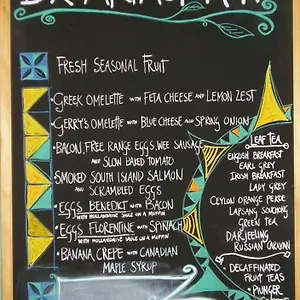 FRESH SEASONAL FRUIT
• GREEK OMELETTE WITH FETA CHEESE AND LEMON ZEST
• GERRY'S OMELETTE WITH BLUE CHEESE AND SPRING ONION
• BACON, FREE RANGE EGGS, WEE SAUSAGE
AND SLOW BAKED TOMATO
• SMOKED SOUTH ISLAND SALMON
AND SCRAMBLED EGGS
• EGGS BENEDICT WITH BACON
WITH HOLLANDAISE SAUCE ON A MUFFIN
• EGGS FLORENTINE WITH SPINACH
WITH HOLLANDAISE SAUCE ON A MUFFIN
• BANANA CREPE WITH CANADIAN
MAPLE SYRUP
LEAF TEA
ENGLISH BREAKFAST
EARL GREY
IRISH BREAKFAST
LADY GREY
CEYLON ORANGE PEKOE
LAPSANG SOUCHONG
GREEN TEA
DARJEELING
RUSSIAN CARAVAN
• DECAFFINATED
FRUIT TEAS
• PLUNGER